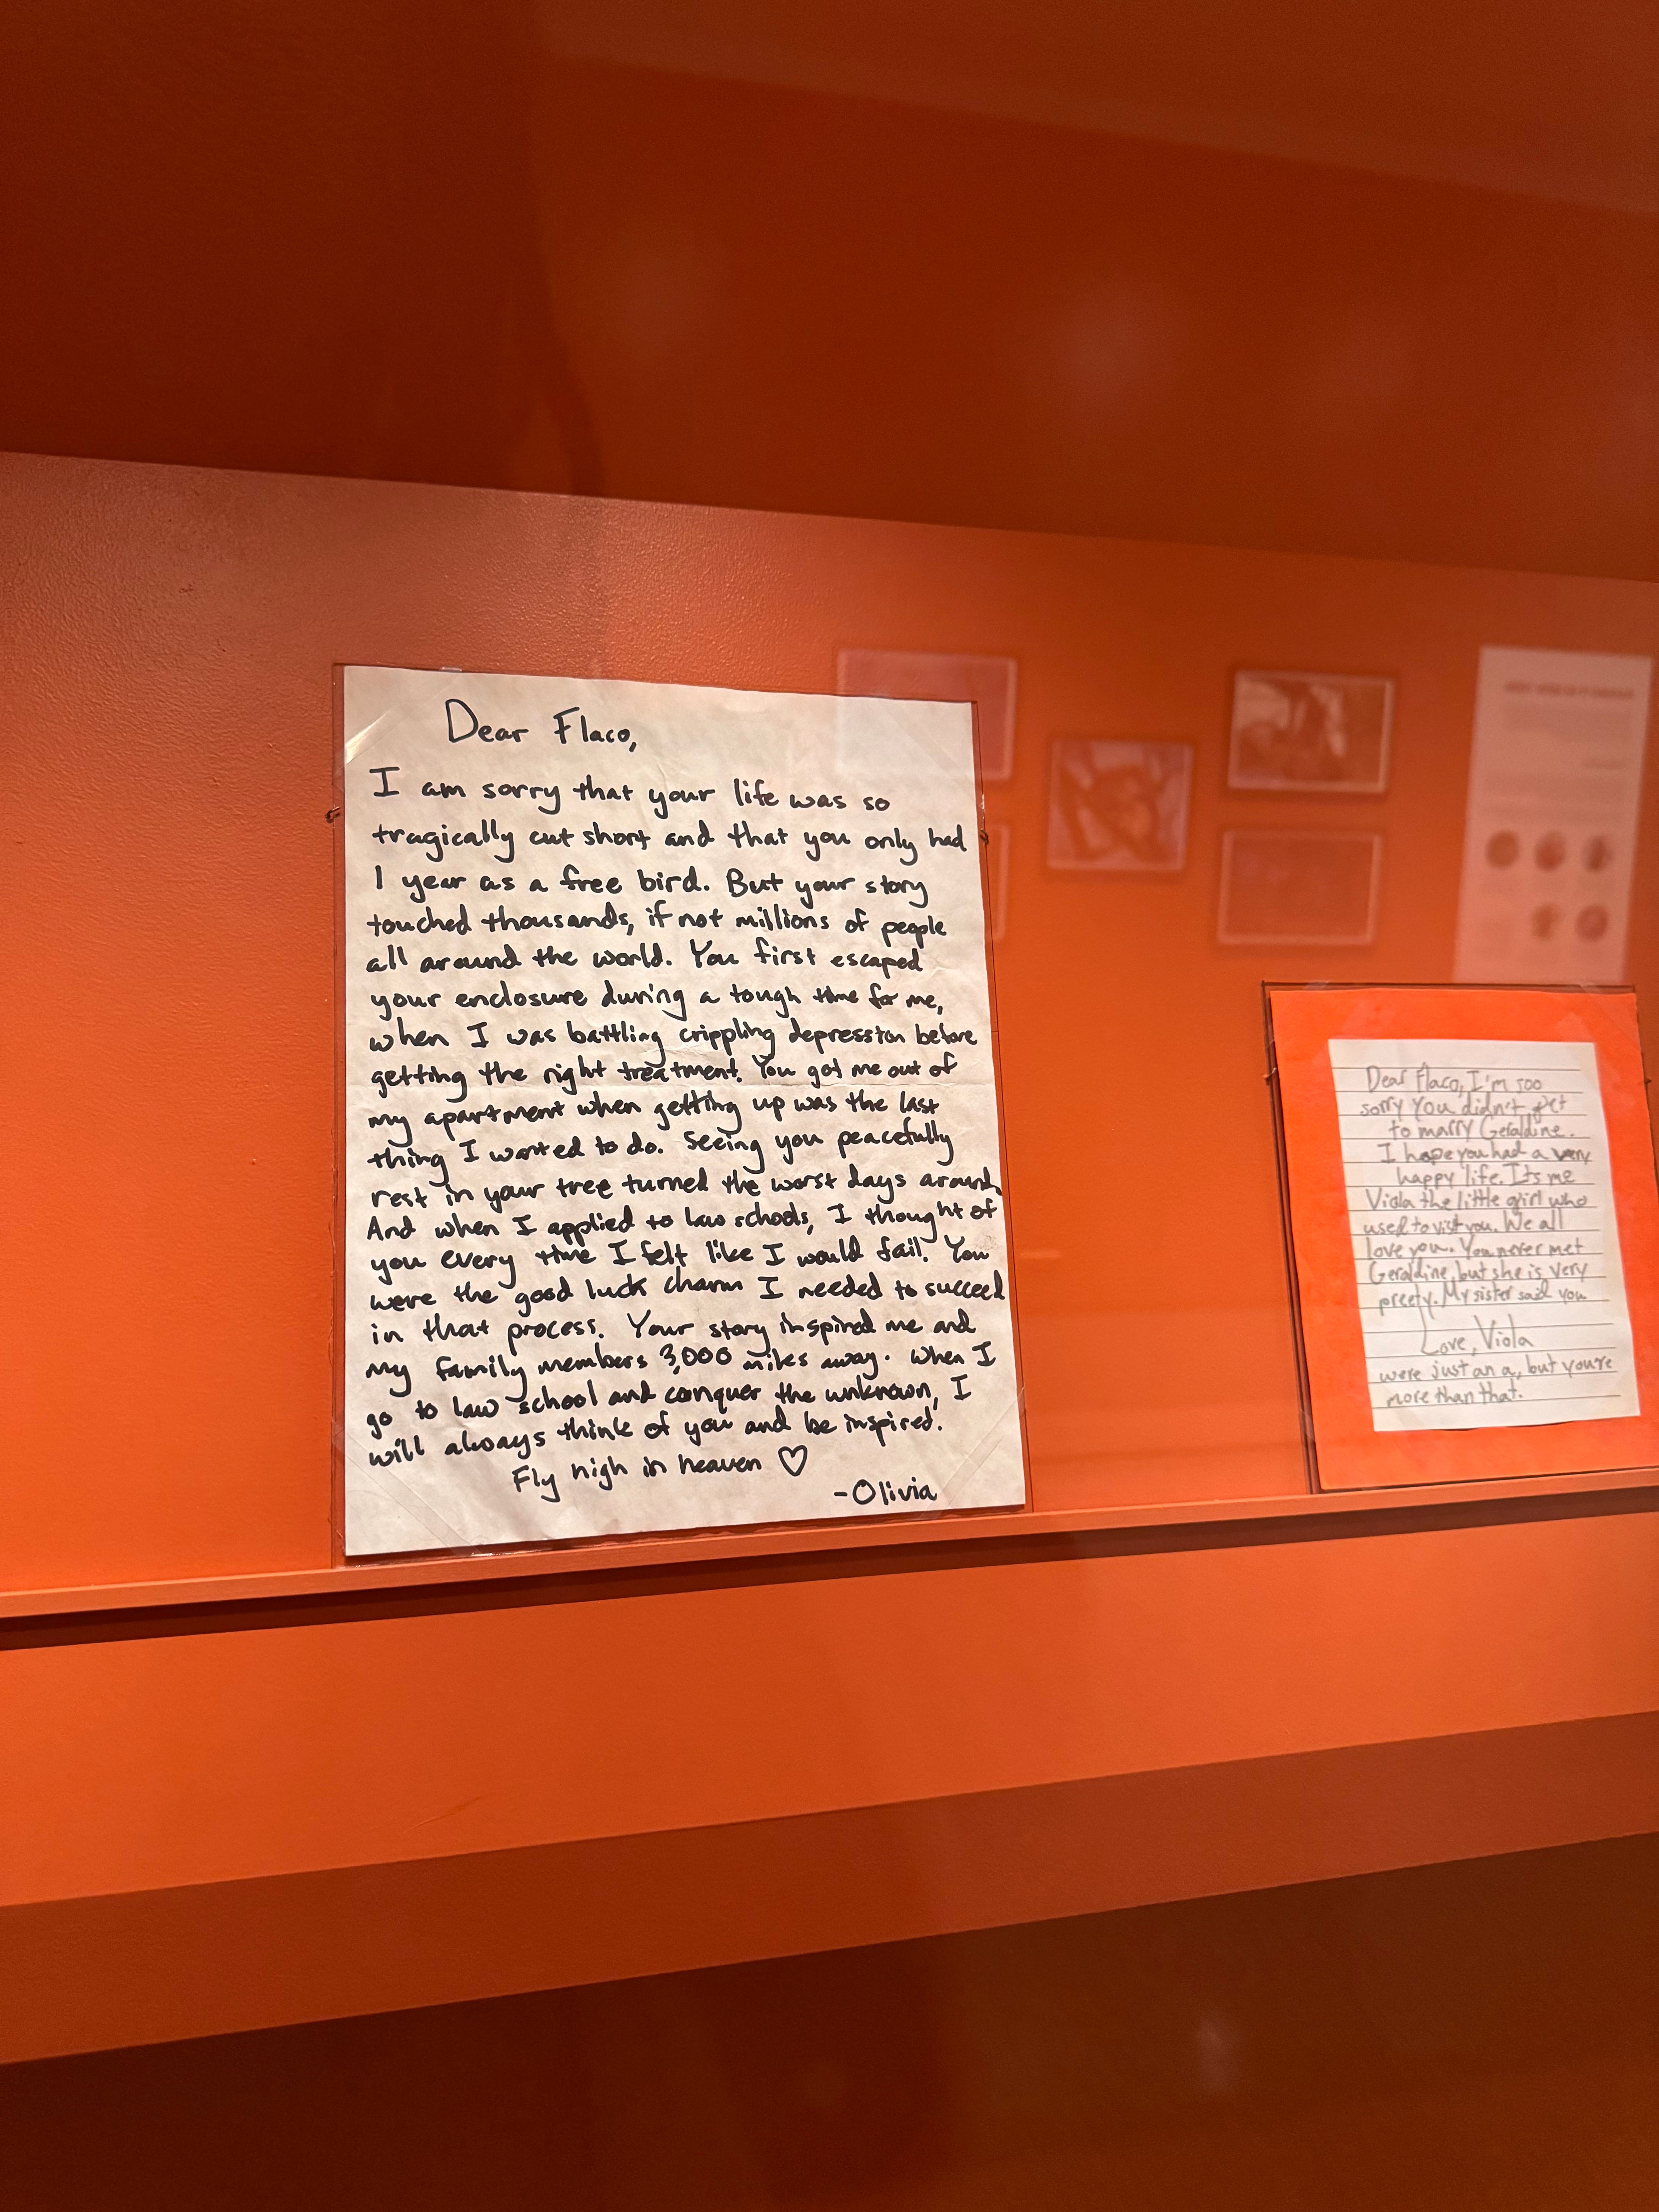 Dear Flaco,
I am sorry that your life was so
tragically cut short and that you only had
1 year as a free bird. But your story
touched thousands, if not millions of people
all around the world. You first escaped
your enclosure during a tough time for me,
when I was battling crippling depression before
getting the right treatment. You got me out of
my apartment when getting up was the last
thing I wanted to do. Seeing you peacefully
rest in your tree turned the worst days around.
And when I applied to law schools, I thought of
you every time I felt like I would fail. You
were the good luck charm I needed to succeed
in that process. Your story inspired me and
my family members 3,000 miles away. When I
go to law school and conquer the unknown, I
will always think of you and be inspired.
Fly high in heaven ♡
-Olivia
Dear Flaco, I'm soo
sorry you didn't get
to marry Geraldine.
I hope you had a very
happy life. Its me
Viola the little girl who
used to visit you. We all
love you. You never met
Geraldine, but she is very
preety. My sister said you
Love, Viola
were just an a, but you're
more than that.